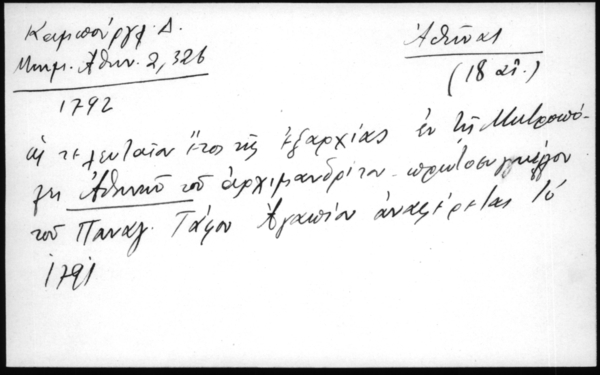 Καμπούργλ. Δ.
Μνημ. Ἀθην. 2, 326
Ἀθῆναι
(18 αἰ.)
1792
ὡς τελευταῖον ἔτος τῆς ἐξαρχίας ἐν τῇ Μητροπό-
λει Ἀθηνῶν τοῦ ἀρχιμανδρίτου πρωτοσυγκέλου
τοῦ Παναγ. Τάφου Ἀγαπίου ἀναφέρεται τό
1791